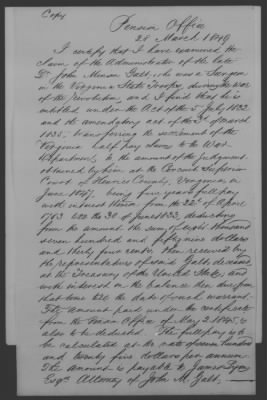 Copy
Pension Office
28 March 1849
I certify that I have examined the
claim of the Administrator of the late
Dr. John Minson Galt, who was a Surgeon
in the Virginia State Troops, during the war
of the Revolution, and I find that he is
entitled, under the Act of the 5 July 1832
and the amendatory act of the 3d of March
1835, transferring the settlement of the
Virginia half pay claims to the War
Department, to the amount of the judgment
obtained by him at the Circuit Superior
Court of Henrico County, Virginia in
June 1847, being five years full pay,
with interest thereon from the 22d of April
1783 till the 30 of June 1833, deducting
from the amount the sum of eight thousand
seven hundred and fifty nine dollars
and thirty four cents then received by
the representatives of said Galt, deceased
at the Treasury of the United States, and
with interest on the balance then due from
that time till the date of such warrant.
The amount paid under the certificate
from the Pension Office of May 2 1845, is
also to be deducted. The full pay is to
be calculated at the rate of seven hundred
and twenty five dollars per annum.
The amount is payable to James
Esqr. Attorney of John M. Galt.